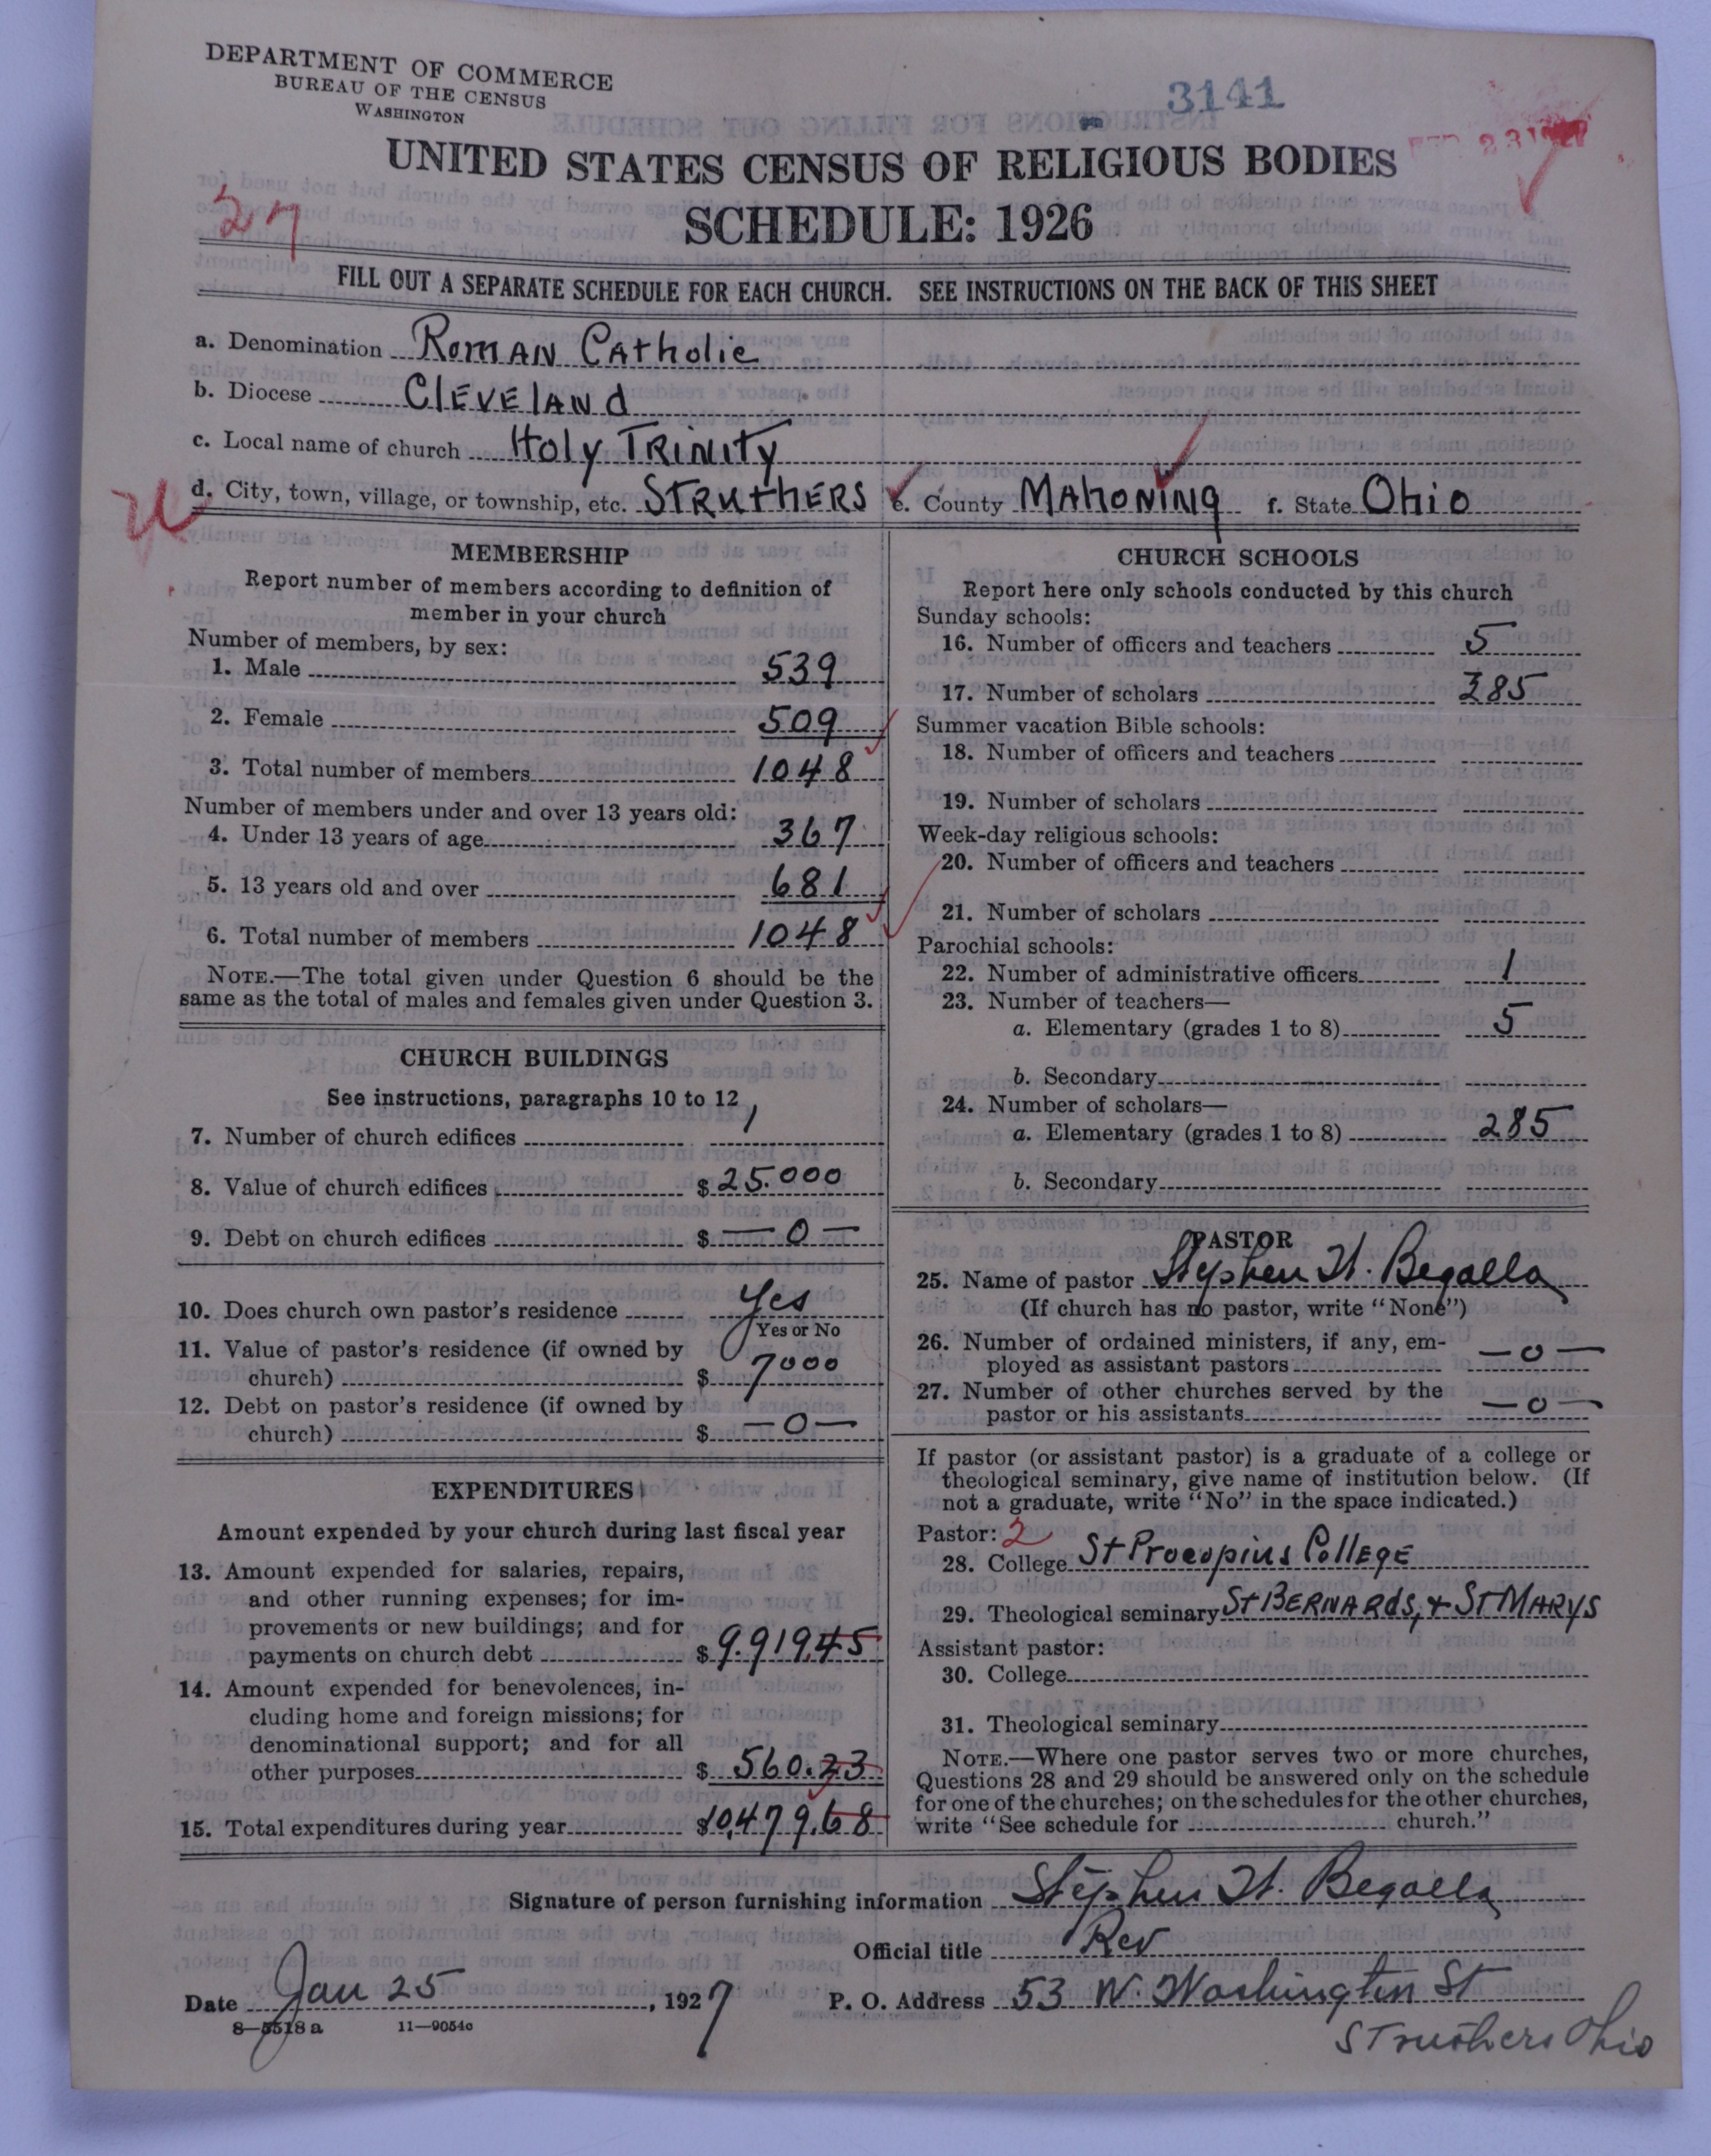 DEPARTMENT OF COMMERCE
BUREAU OF THE CENSUS
WASHINGTON
3141
UNITED STATES CENSUS OF RELIGIOUS BODIES
27
SCHEDULE: 1926
FILL OUT A SEPARATE SCHEDULE FOR EACH CHURCH. SEE INSTRUCTIONS ON THE BACK OF THIS SHEET
a. Denomination Roman Catholic
b. Diocese Cleveland
c. Local name of church Holy Trinity
d. City, town, village, or township, etc. Struthers e. County Mahoning f. State Ohio
MEMBERSHIP
Report number of members according to definition of
member in your church
Number of members, by sex:
1. Male 539
2. Female 509
3. Total number of members 1048
Number of members under and over 13 years old:
4. Under 13 years of age 367
5. 13 years old and over 681
6. Total number of members 1048
NOTE.—The total given under Question 6 should be the
same as the total of males and females given under Question 3.
CHURCH BUILDINGS
See instructions, paragraphs 10 to 12
7. Number of church edifices 1
8. Value of church edifices $ 25.000
9. Debt on church edifices $ —0—
10. Does church own pastor's residence Yes
Yes or No
11. Value of pastor's residence (if owned by
church) $ 7000
12. Debt on pastor's residence (if owned by
church) $ —0—
EXPENDITURES
Amount expended by your church during last fiscal year
13. Amount expended for salaries, repairs,
and other running expenses; for im-
provements or new buildings; and for
payments on church debt $ 9.919.45
14. Amount expended for benevolences, in-
cluding home and foreign missions; for
denominational support; and for all
other purposes $ 560.23
15. Total expenditures during year $10,479.68
CHURCH SCHOOLS
Report here only schools conducted by this church
Sunday schools:
16. Number of officers and teachers 5
17. Number of scholars 285
Summer vacation Bible schools:
18. Number of officers and teachers
19. Number of scholars
Week-day religious schools:
20. Number of officers and teachers
21. Number of scholars
Parochial schools:
22. Number of administrative officers 1
23. Number of teachers—
a. Elementary (grades 1 to 8) 5
b. Secondary
24. Number of scholars—
a. Elementary (grades 1 to 8) 285
b. Secondary
PASTOR
25. Name of pastor Stephen H. Begalla
(If church has no pastor, write "None")
26. Number of ordained ministers, if any, em-
ployed as assistant pastors —0—
27. Number of other churches served by the
pastor or his assistants —0—
If pastor (or assistant pastor) is a graduate of a college or
theological seminary, give name of institution below. (If
not a graduate, write "No" in the space indicated.)
Pastor: 2
28. College St Procopius College
29. Theological seminary St Bernards, + St Marys
Assistant pastor:
30. College
31. Theological seminary
NOTE.—Where one pastor serves two or more churches,
Questions 28 and 29 should be answered only on the schedule
for one of the churches; on the schedules for the other churches,
write "See schedule for church."
Signature of person furnishing information Stephen H. Begalla
Official title Rev
Date Jan 25, 1927 P. O. Address 53 W. Washington St
Struthers Ohio
8—5518 a 11—9054c